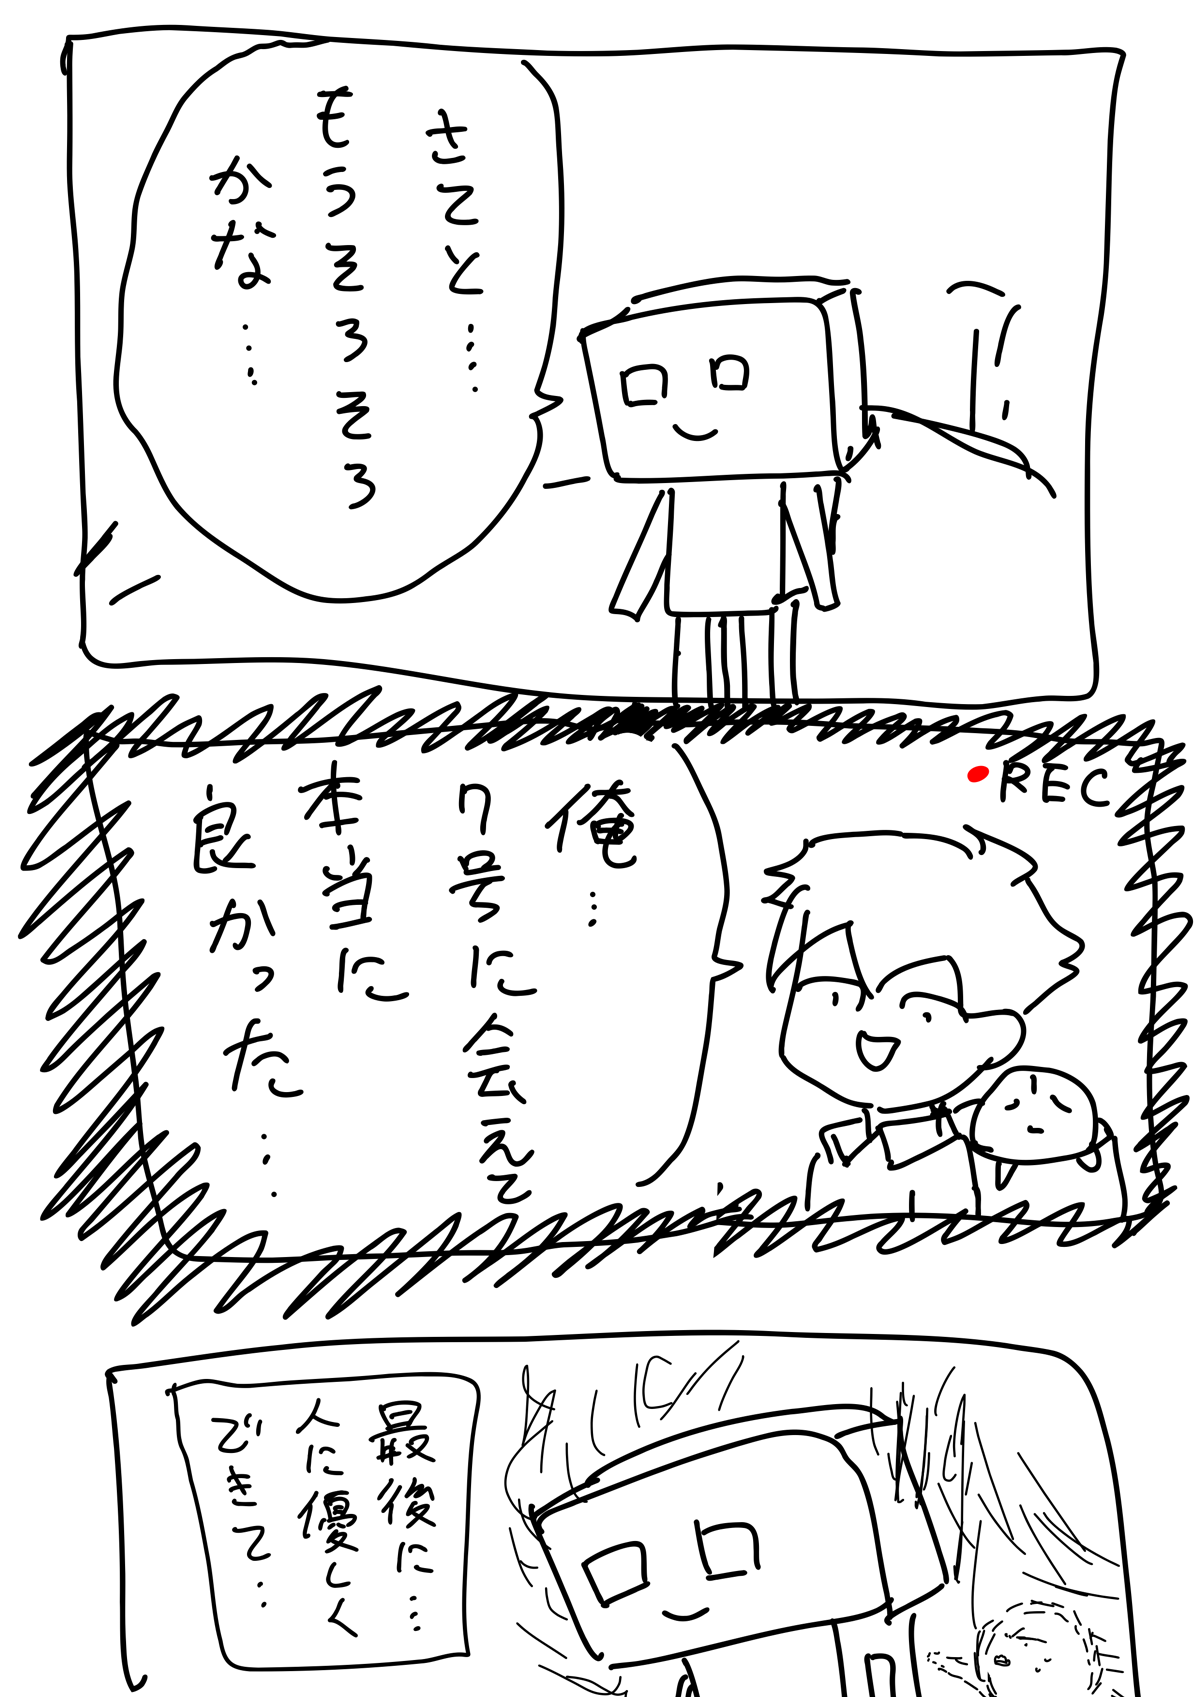 さてと…
もうそろそろ
かな…
REC
俺…
7号に会えて
本当に
良かった…
最後に…
人に優しく
できて…